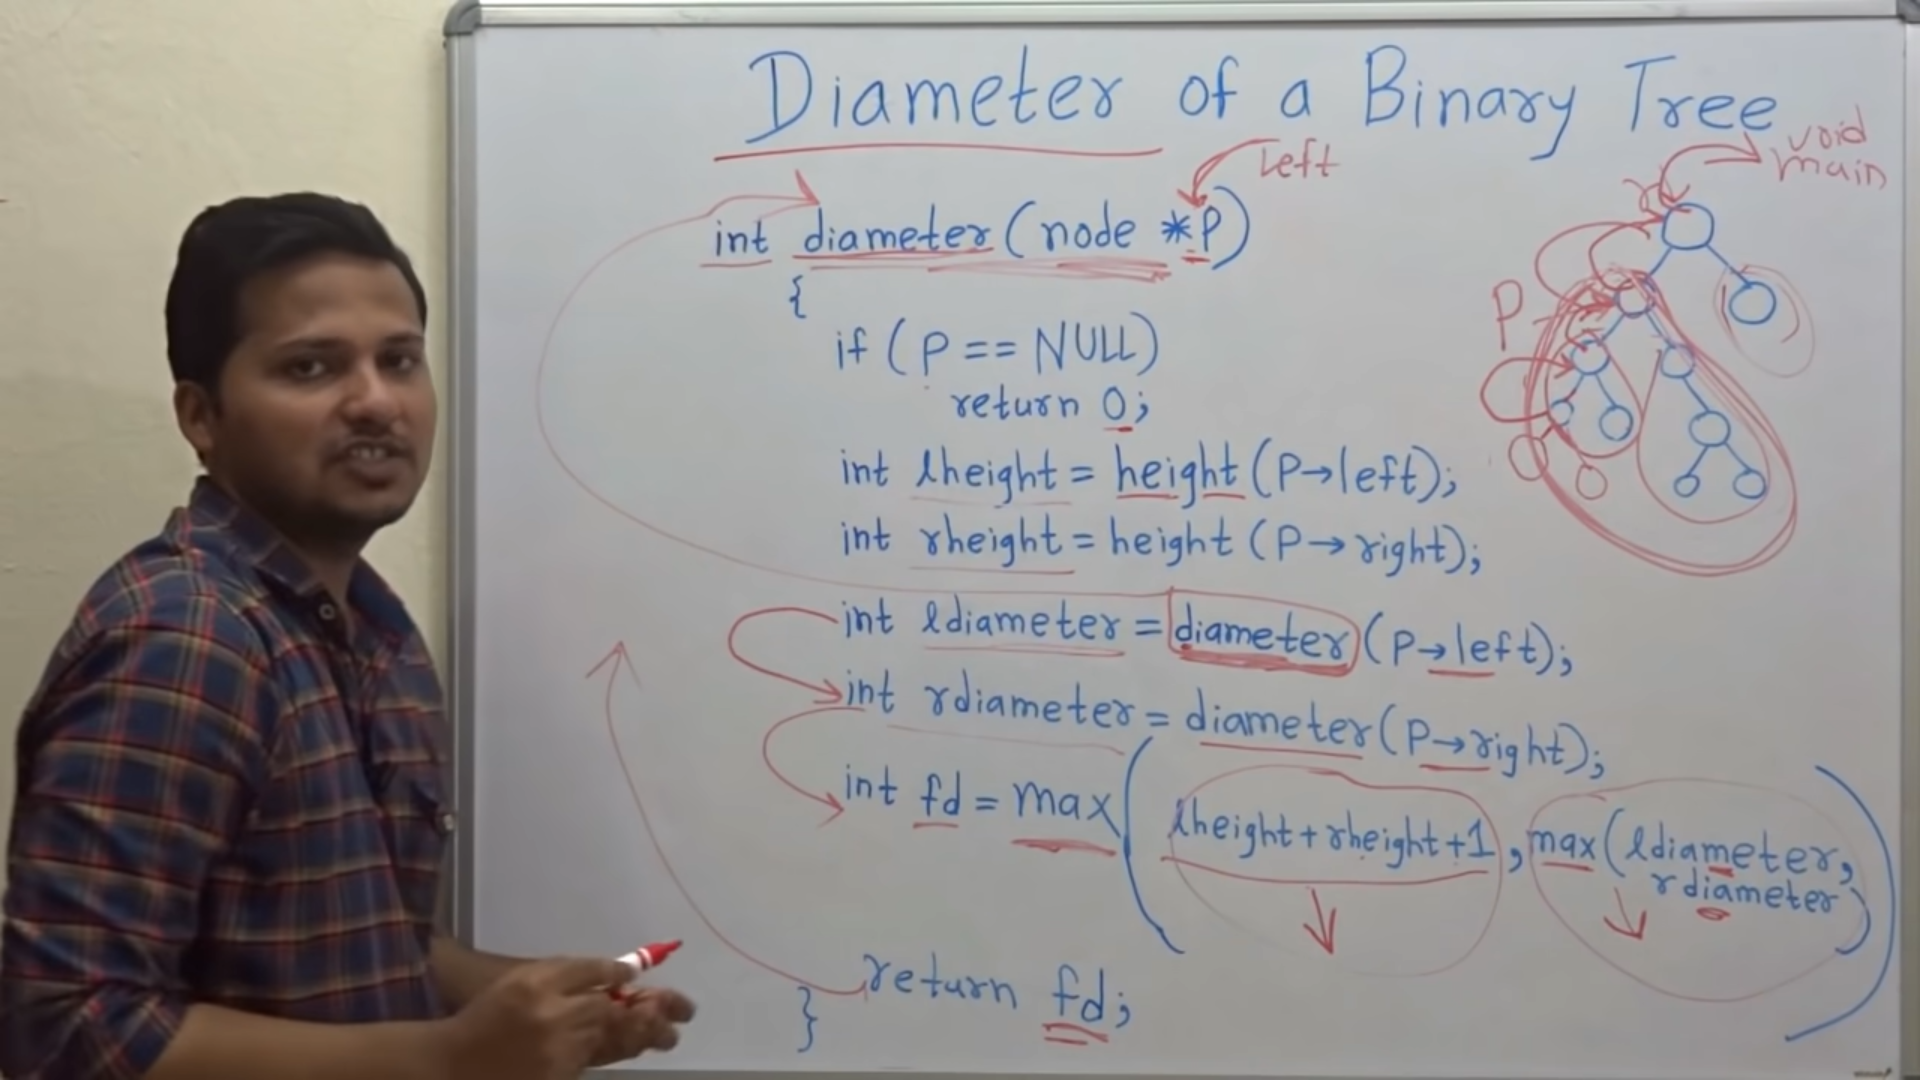 Diameter of a Binary Tree
void main
left
int diameter(node *P)
{
if (P == NULL)
return 0;
int lheight = height(P→left);
int rheight = height(P→right);
int ldiameter = diameter(P→left);
int rdiameter = diameter(P→right);
int fd = max(lheight+rheight+1, max(ldiameter,
rdiameter))
return fd;
}
P